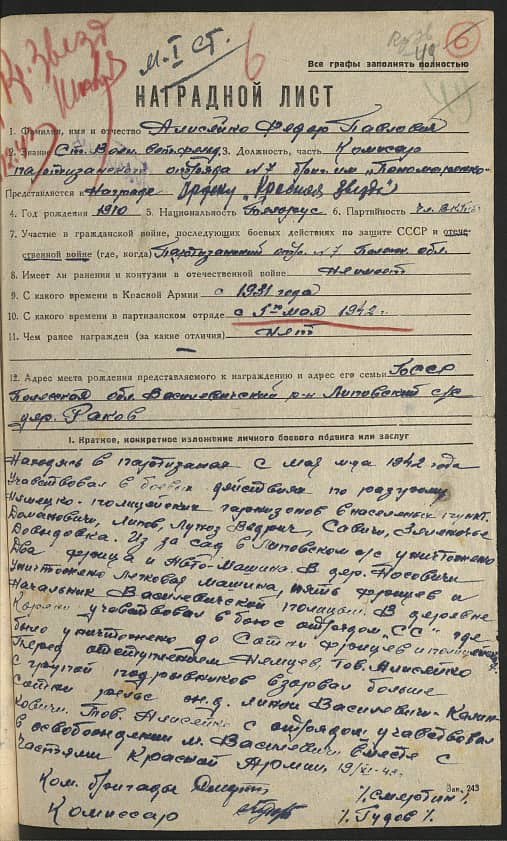 Кр. Звезд
М. I ст.
6
49
6
Все графы заполнять полностью
НАГРАДНОЙ ЛИСТ
1. Фамилия, имя и отчество Алисейко Федор Павлович
2. Звание Ст. 3. Должность, часть Комисар
партизанского отряда №7 бриг. им "Пономаренко"
Представляется к Награде Ордену "Красная звезда"
4. Год рождения 1910 5. Национальность Белорус 6. Партийность чл. ВКПб
7. Участие в гражданской войне, последующих боевых действиях по защите СССР и отече-
ственной войне (где, когда) Партизанский отр. №7 Полесск. обл.
8. Имеет ли ранения и контузии в отечественной войне Неимеет
9. С какого времени в Красной Армии с 1931 года
10. С какого времени в партизанском отряде с 1го мая 1942 г.
11. Чем ранее награжден (за какие отличия) Нет
12. Адрес места рождения представляемого к награждению и адрес его семьи БССР
Полесская обл. Василевичский р-н Липовский с/с
дер. Раков
I. Краткое, конкретное изложение личного боевого подвига или заслуг
Находясь в партизанах с мая м-ца 1942 года
Учавствовал в боевых действиях по разгрому
Немецко-полицейских гарнизонов в населенных пункт.
Домановичи, Липов, Ведрич, Савичи,
Давыдовка. Из за сад в Липовском с/с уничтожено
Два фрица и Авто-Машина. В дер. Носовичи
Уничтожено Легковая машина, пять фрицев и
Начальник Василевичской полиции. В деревне
учавствовал в боюс отрядом "СС" где
было уничтожено до Сотни фрицев и полицейских.
Перед отступлением Немцев, Тов. Алисейко
с групой подрывников взорвал больше
сотни рельс ж.д. линии Василевичи-Калин-
ковичи. Тов. Алисейко с отрядом учавствовал
в освобождении м. Василевичи вместе с
Частями Красной Армии. 19/XI-43г.
Ком. бригады /Смертин/.
Зак. 243
Комиссар /Гудов/.